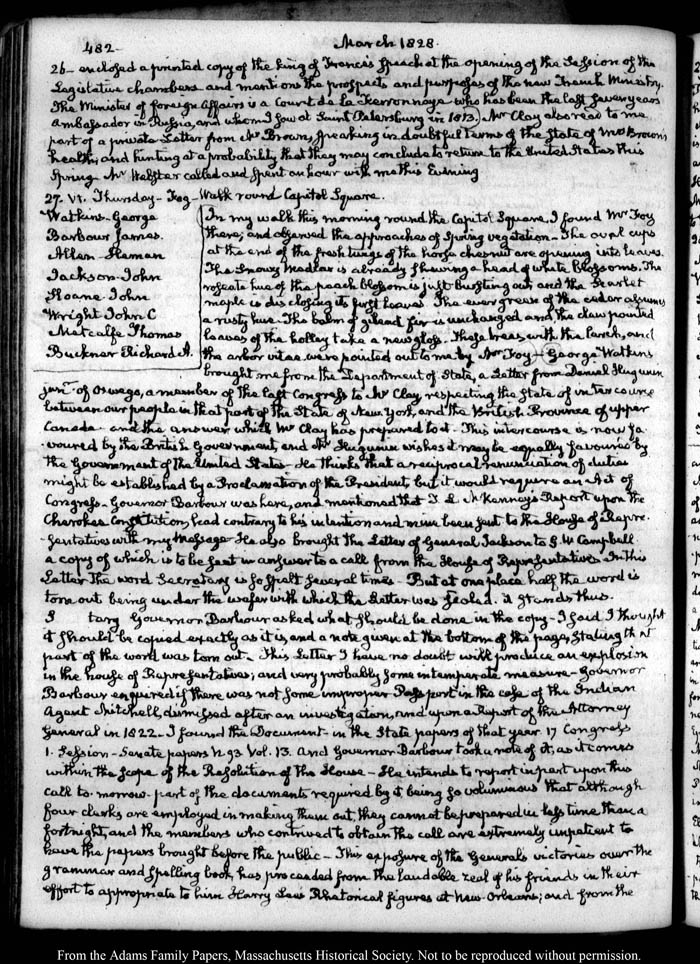 482
March 1828.
26_ enclosed a printed copy of the King of France's Speech at the opening of the Session of the
Legislative chambers and mentions the prospects and purposes of the new French Ministry.
The Minister of foreign Affairs is a Court de la Ferronnaye who has been the last seven years
Ambassador in Russia, and whom I saw at Saint Petersburg in 1813. Mr Clay also read to me
part of a private Letter from Mr Brown, speaking in doubtful terms of the State of Mrs Brown's
health, and hinting at a probability that they may conclude to return to the United States this
Spring Mr Webster called and spent an hour with me this Evening
27. VI. Thursday_ Fog_ Walk round Capitol Square.
Watkins_ George
Barbour James.
Allen_ Heman
Jackson_ John
Sloane_ John
Wright John C
Metcalfe Thomas
Buckner Richard A.
In my walk this morning round the Capitol Square, I found Mr Foy
there; and observed the approaches of Spring vegetation_ The oval cups
at the end of the fresh twigs of the horse chesnut are opening into leaves.
The Snowy Medlar is already shewing a head of white blossoms. The
roseate hue of the peach blossom is just bursting out and the Scarlet
maple is disclosing its first leaves. The evergreen of the cedar assumes
a rusty hue_ The balm of gilead fir is unchanged and the claw pointed
leaves of the holley take a new gloss_ These trees, with the larch, and
the arbor vitae were pointed out to me by Mr Foy_ George Watkins
brought me from the Department of State, a Letter from Daniel Hugunin
junr of Oswego, a member of the last Congress to Mr Clay, respecting the State of intercourse
between our people in that part of the State of New York, and the British Province of upper
Canada_ and the answer which Mr Clay has prepared to it_ This intercourse is now fa-
voured by the British Government, and Mr Hugunin wishes it may be equally favoured by
the Government of the United States_ He thinks that a reciprocal renunciation of duties
might be established by a Proclamation of the President, but it would require an Act of
Congress_ Governor Barbour was here, and mentioned that T. L. McKenney's Report upon the
Cherokee Constitution, had contrary to his intention and mine been sent to the House of Repre-
sentatives with my Message_ He also brought the Letter of General Jackson to G. W. Campbell
a copy of which is to be sent in answer to a call from the House of Representatives_ In this
Letter the word Secretary is so spelt several times_ But at one place half the word is
torn out being under the wafer with which the Letter was sealed. it stands thus.
S tary Governor Barbour asked what should be done in the copy_ I said I thought
it should be copied exactly as it is, and a note given at the bottom of the page, stating that
part of the word was torn out_ This Letter I have no doubt will produce an explosion
in the house of Representatives, and very probably some intemperate measure_ Governor
Barbour enquired if there was not some improper Passport in the case of the Indian
Agent Mitchell, dismissed after an investigation, and upon a Report of the Attorney
General in 1822_ I found the Document in the State papers of that year 17 Congress
1. Session_ Senate papers N. 93 Vol. 13. and Governor Barbour took a note of it, as it comes
within the scope of the Resolution of the House_ He intends to report in part upon this
call to-morrow part of the documents required by it being so voluminous that although
four clerks are employed in making them out, they cannot be prepared in less time than a
fortnight, and the members who contrived to obtain the call are extremely impatient to
have the papers brought before the public_ This exposure of the General's victories over the
grammar and spelling book, has proceeded from the laudable zeal of his friends in their
effort to appropriate to him Harry Lee's Rhetorical figures at New-Orleans; and from the
From the Adams Family Papers, Massachusetts Historical Society. Not to be reproduced without permission.